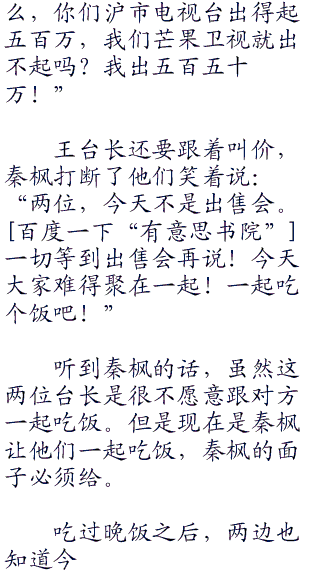 么，你们沪市电视台出得起
五百万，我们芒果卫视就出
不起吗？我出五百五十
万！”
王台长还要跟着叫价，
秦枫打断了他们笑着说：
“两位，今天不是出售会。
[百度一下“有意思书院”]
一切等到出售会再说！今天
大家难得聚在一起！一起吃
个饭吧！”
听到秦枫的话，虽然这
两位台长是很不愿意跟对方
一起吃饭。但是现在是秦枫
让他们一起吃饭，秦枫的面
子必须给。
吃过晚饭之后，两边也
知道今